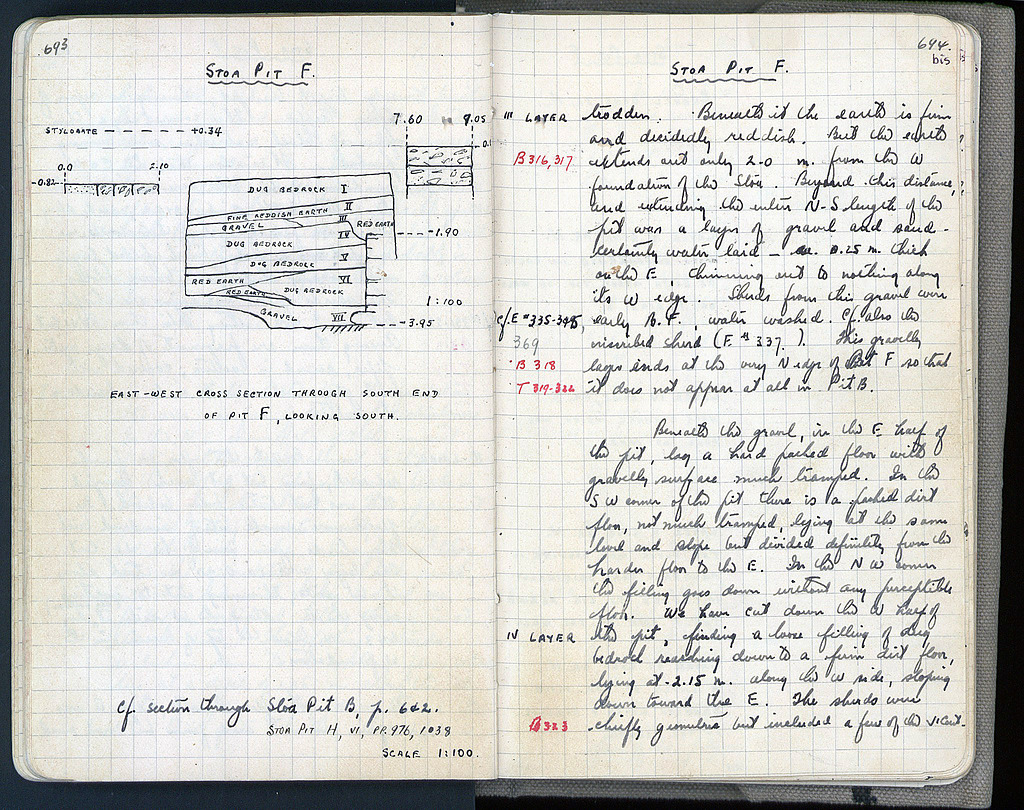 693
STOA PIT F.
7.60 9.05
STYLOBATE +0.34
0.0 2.10
-0.82
DUG BEDROCK I
II
FINE REDDISH EARTH
III
GRAVEL
RED EARTH
IV
-1.90
DUG BEDROCK
V
DUG BEDROCK
RED EARTH VI
RED EARTH DUG BEDROCK
1:100
GRAVEL VII
-3.95
EAST-WEST CROSS SECTION THROUGH SOUTH END
OF PIT F, LOOKING SOUTH.
Cf. section through Stoa Pit B, p. 642.
STOA PIT H, VI, PP. 976, 1038
SCALE 1:100.
694.
bis
STOA PIT F.
III LAYER trodden. Beneath it the earth is firm
and decidedly reddish. But the earth
B 316, 317 extends out only 2.0 m. from the W
foundation of the Stoa. Beyond this distance,
and extending the entire N-S length of the
pit was a layer of gravel and sand -
certainly water laid - ca. 0.25 m. thick
on the E thinning out to nothing along
its W edge. Sherds from this gravel were
cf. E # 335-345, early R.F., water washed. Cf. also the
369 inscribed sherd (E # 337. ). This gravelly
B 318 layer ends at the very N edge of Pit F so that
T 319-322 it does not appear at all in Pit B.
Beneath the gravel, in the E half of
the pit, lay a hard packed floor with
gravelly surface much tramped. In the
SW corner of the pit there is a packed dirt
floor, not much tramped, lying at the same
level and slope but divided definitely from the
harder floor to the E. In the NW corner
the filling goes down without any perceptible
floor. We have cut down the W half of
IV LAYER the pit, finding a loose filling of dug
bedrock reaching down to a firm dirt floor,
lying at -2.15 m. along the W side, sloping
down toward the E. The sherds were
B 323 chiefly geometric but included a few of the VI cent.